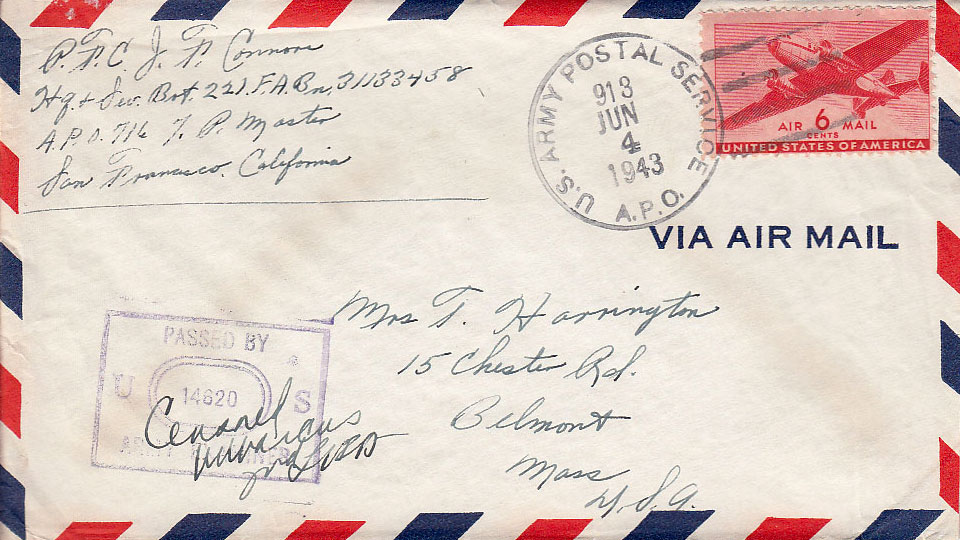 P.F.C. J. F. Connors
Hq. + Ser. Bat. 221. F.A. Bn. 31133458
A.P.O. 716 % P. Master
San Francisco. California
U.S. ARMY POSTAL SERVICE
913
JUN
4
1943
A.P.O.
AIR 6 MAIL
CENTS
UNITED STATES OF AMERICA
VIA AIR MAIL
Mrs T. Harrington
15 Chester Rd.
Belmont
Mass
U.S.A.
PASSED BY
U 14620 S
ARMY EXAMINER